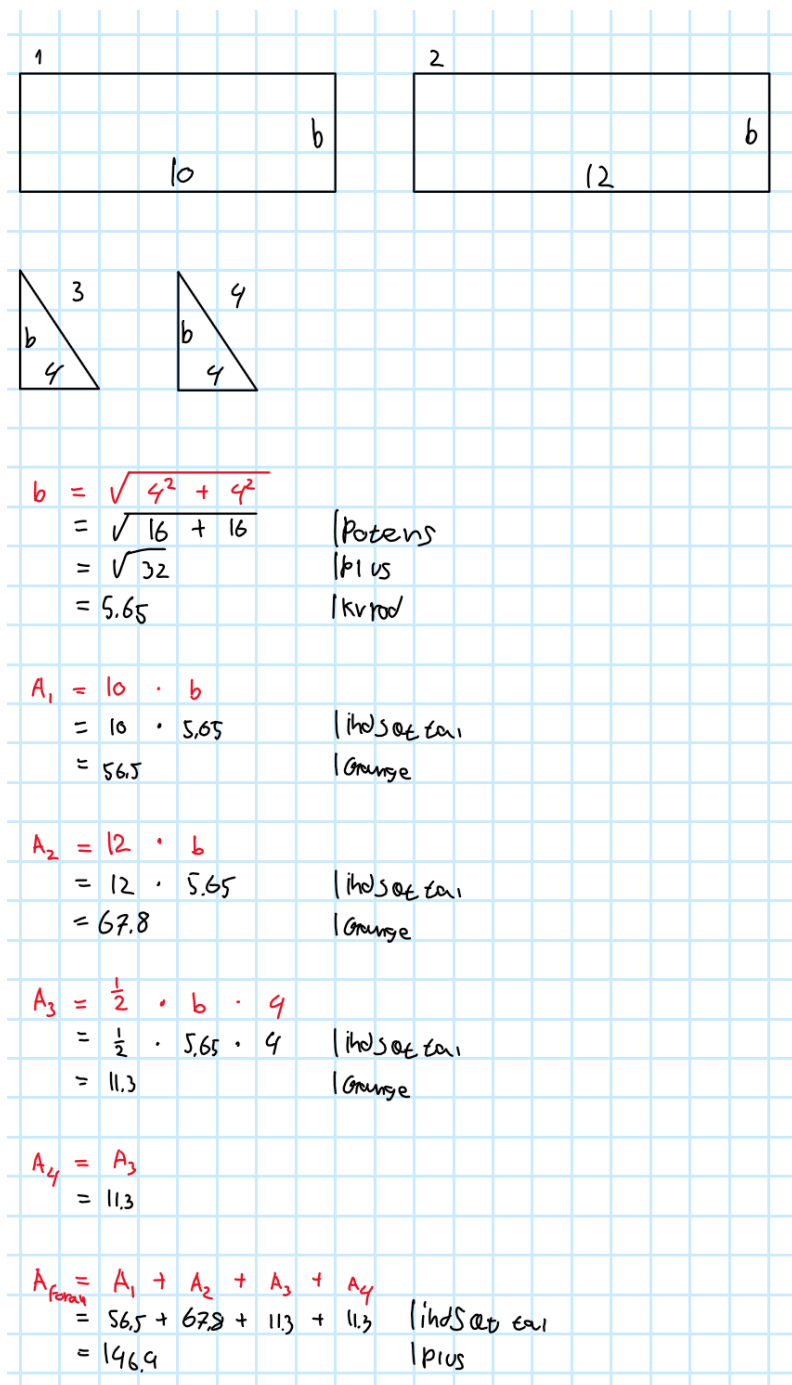 1 2
b b
10 12
3 4
b b
4 4
b = √4² + 4²
= √16 + 16 |Potens
= √32 |plus
= 5.65 |kvrod
A₁ = 10 · b
= 10 · 5,65 |indsæt tal
= 56,5 |Gange
A₂ = 12 · b
= 12 · 5.65 |indsæt tal
= 67.8 |Gange
A₃ = ½ · b · 4
= ½ · 5,65 · 4 |indsæt tal
= 11.3 |Gange
A₄ = A₃
= 11.3
A = A₁ + A₂ + A₃ + A₄
= 56,5 + 67,8 + 11.3 + 11.3 |indsæt tal
= 146.9 |plus